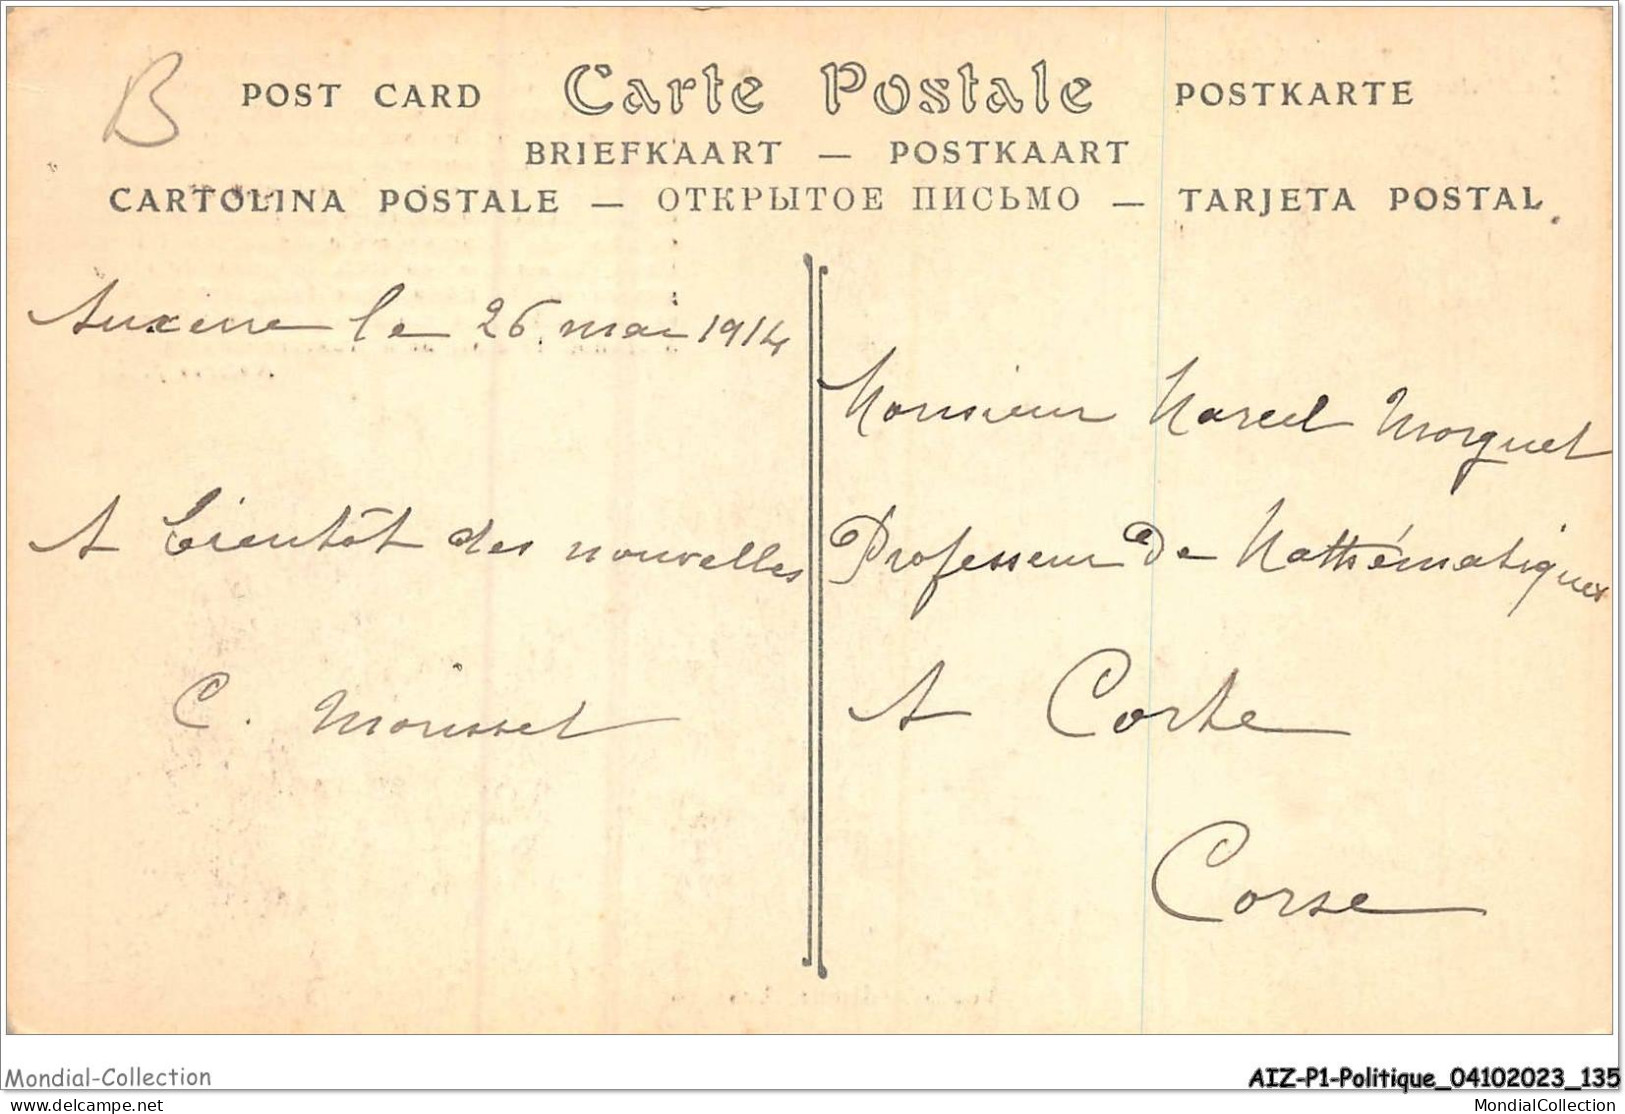 B
POST CARD Carte Postale POSTKARTE
BRIEFKAART — POSTKAART
CARTOLINA POSTALE — ОТКРЫТОЕ ПИСЬМО — TARJETA POSTAL
Auxerre le 26 mai 1914
A bientôt des nouvelles
C. Morisset
Monsieur Marcel Morguet
Professeur de Mathématiques
A Corte
Corse
Mondial-Collection
AIZ-P1-Politique_04102023_135
www.delcampe.net
MondialCollection